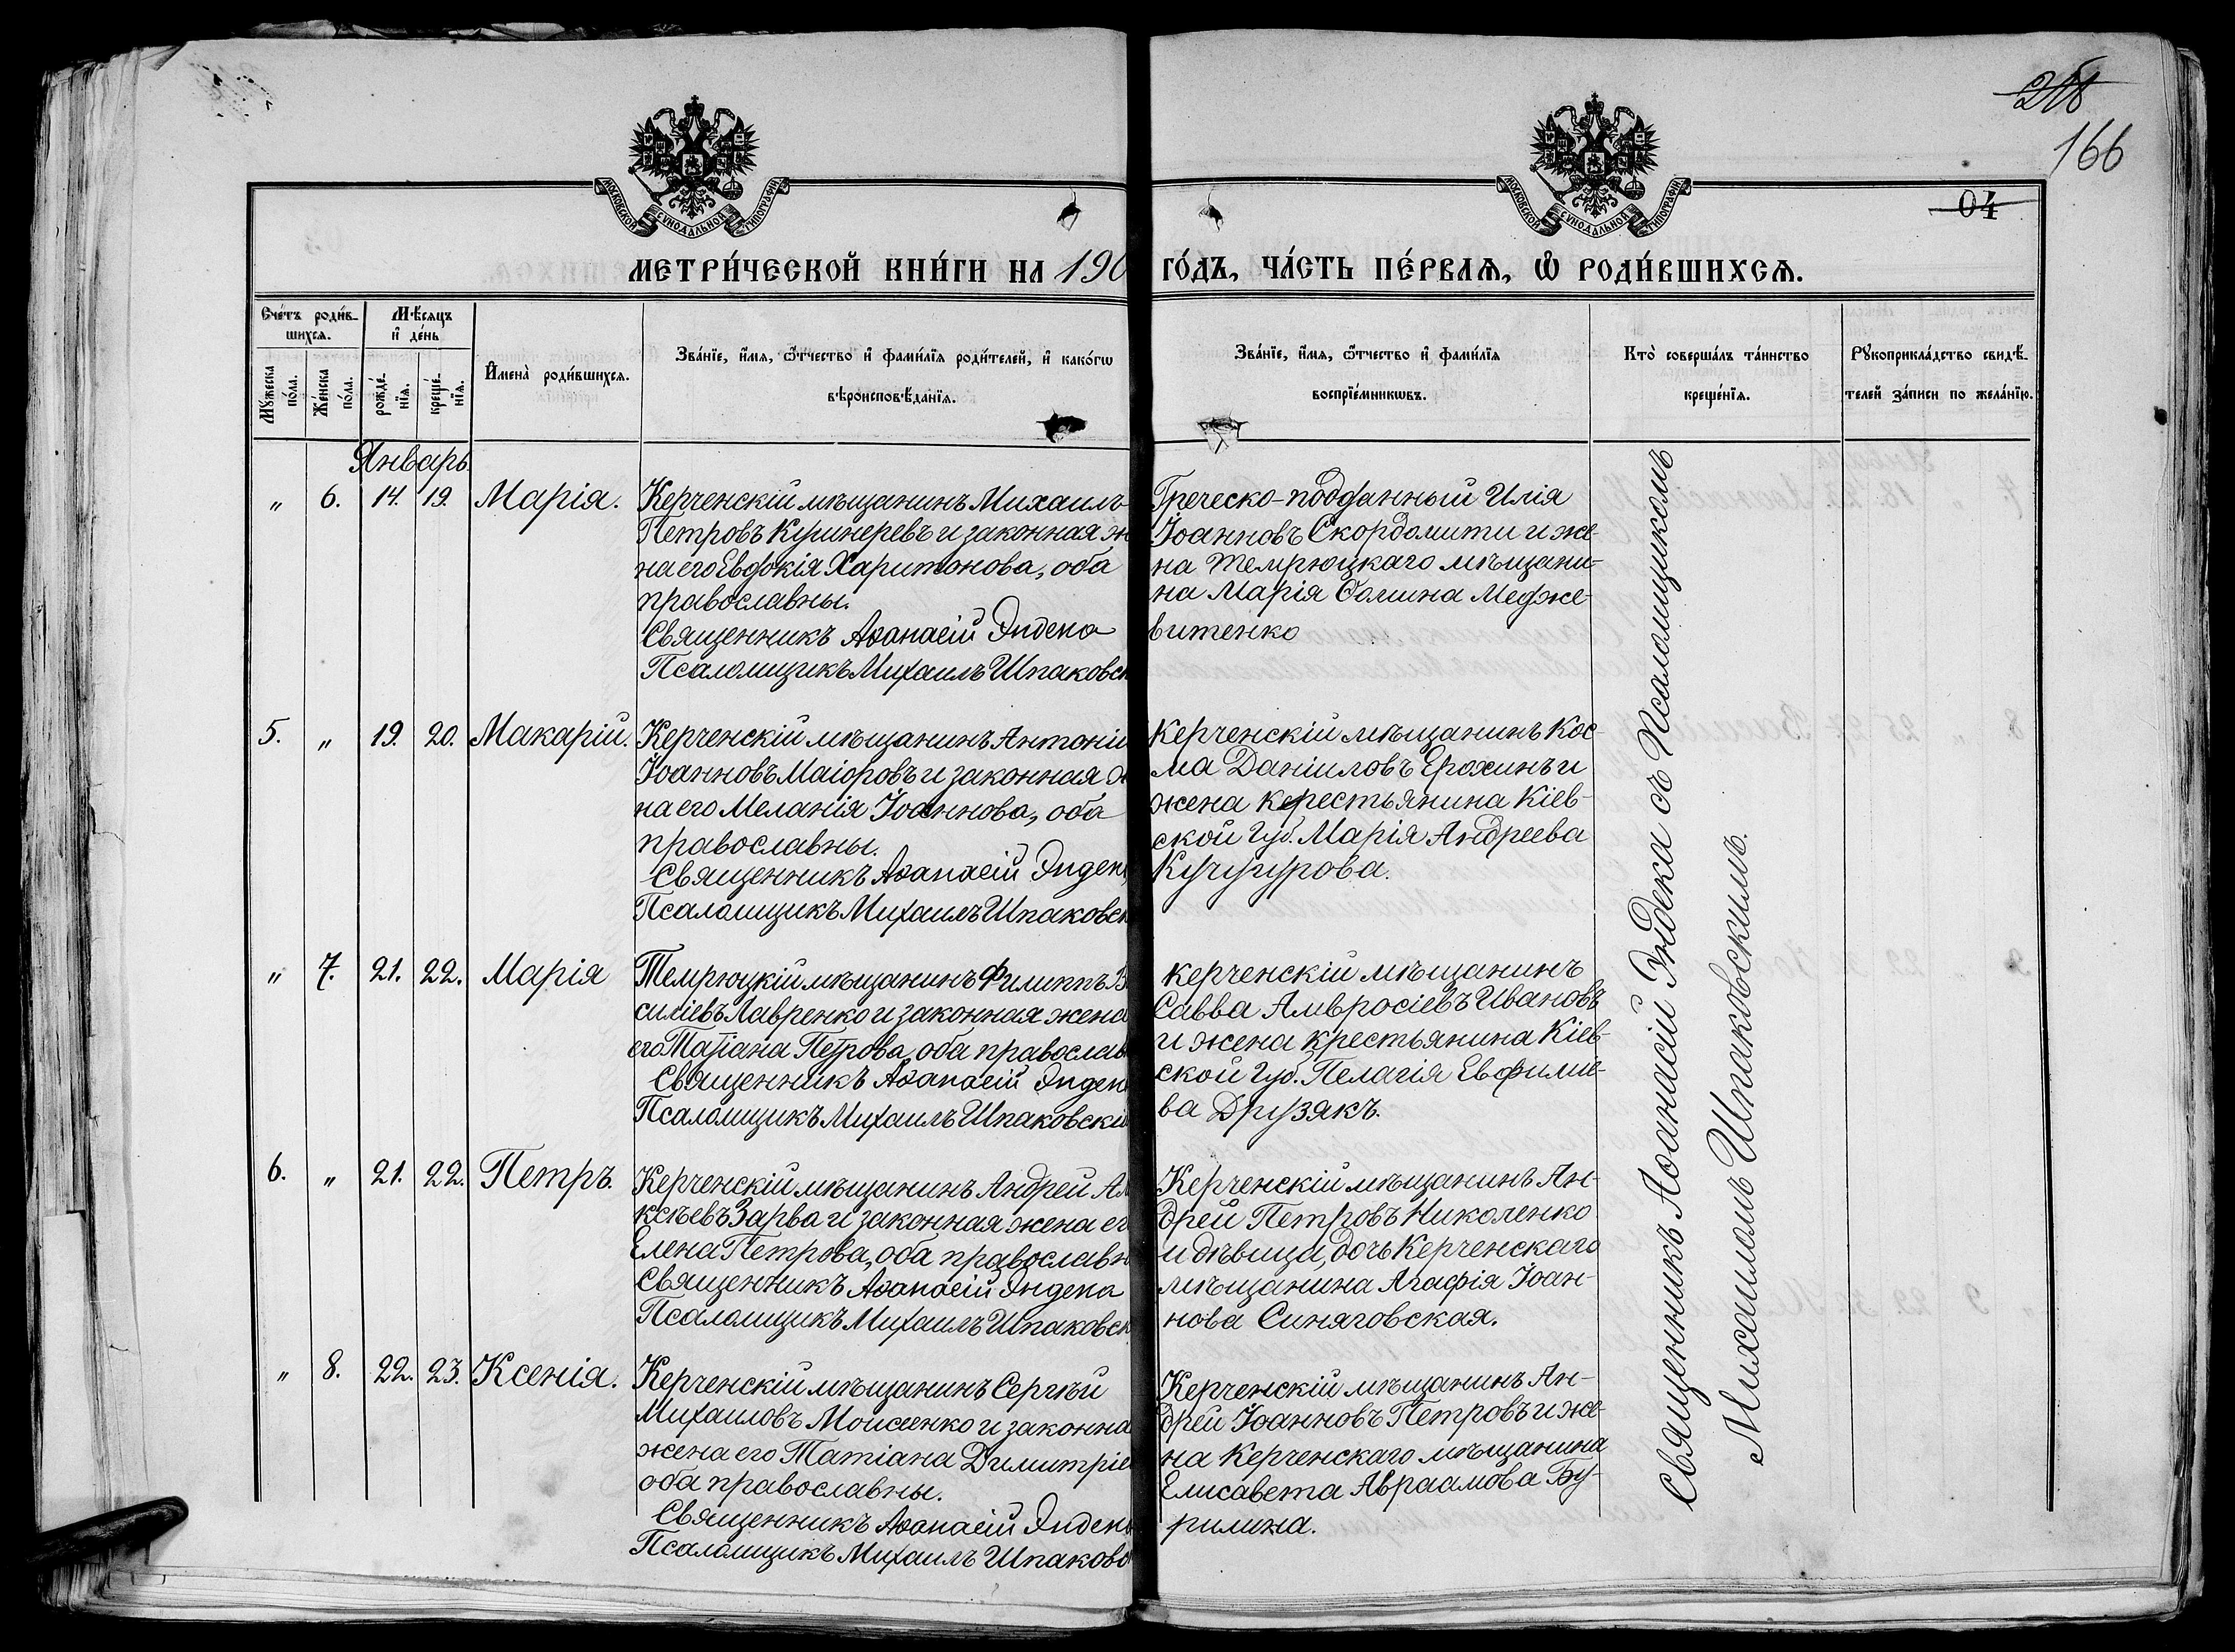 166
04
МОСКОВСКОЙ СѴНОДАЛЬНОЙ ТИПОГРАФІИ
МОСКОВСКОЙ СѴНОДАЛЬНОЙ ТИПОГРАФІИ
МЕТРИ́ЧЕСКОЙ КНИ́ГИ НА 190
ГО́ДЪ, ЧА́СТЬ ПЕ́РВАѦ, Ѽ РОДИ́ВШИХСѦ.
Сче́тъ роди́в-
шихсѧ.
Мꙋжеска по́ла.
Же́нска по́ла.
Мѣ́сѧцъ
и҆ де́нь
рожде́-
нїѧ.
креще́-
нїѧ.
И҆мена̀ роди́вшихсѧ.
Зва́нїе, и҆́мѧ, ѻ҆́тчество и҆ фами́лїѧ роди́телей, и҆ како́гѡ
вѣроисповѣ́данїѧ.
Зва́нїе, и҆́мѧ, ѻ҆́тчество и҆ фами́лїѧ
воспрїе́мникѡвъ.
Кто̀ соверша́лъ та́инство
креще́нїѧ.
Рꙋкоприкла́дство свидѣ́-
телей за́писи по жела́нїю.
Январь
„ 6. 14. 19. Марія.
Керченскій мѣщанинъ Михаилъ
Петровъ Кушнеревъ и законная ж
на его Евдокія Харитонова, оба
православны.
Священникъ Аѳанасій Эндека
Псаломщикъ Михаилъ Шпаковск
Греческо-подданный Илія
Іоанновъ Скордомити и же-
на темрюцкаго мѣщани-
на Марія Ѳомина Медже-
витенко
5. „ 19. 20. Макарій.
Керченскій мѣщанинъ Антоній
Іоанновъ Маіоровъ и законная ж
на его Меланія Іоаннова, оба
православны.
Священникъ Аѳанасій Эндек
Псаломщикъ Михаилъ Шпаковск
Керченскій мѣщанинъ Кос-
ма Даніиловъ Ерохинъ и
жена крестьянина Кіев-
ской Губ. Марія Андреева
Кучугурова.
„ 7. 21. 22. Марія
Темрюцкій мѣщанинъ Филиппъ В
силіевъ Лавренко и законная жена
его Татіана Петрова, оба православ
Священникъ Аѳанасій Эндек
Псаломщикъ Михаилъ Шпаковскі
Керченскій мѣщанинъ
Савва Амвросіевъ Ивановъ
и жена крестьянина Кіев-
ской Губ. Пелагія Евфиміе-
ва Друзякъ.
6. „ 21. 22. Петръ.
Керченскій мѣщанинъ Андрей Ал
ксѣевъ Зарва и законная жена ег
Елена Петрова, оба православн
Священникъ Аѳанасій Эндека
Псаломщикъ Михаилъ Шпаковск
Керченскій мѣщанинъ Ан-
дрей Петровъ Николенко
и дѣвица, дочь Керченскаго
мѣщанина Агафія Іоан-
нова Синяговская.
„ 8. 22. 23. Ксенія.
Керченскій мѣщанинъ Сергѣй
Михаиловъ Моисеенко и законна
жена его Татіана Димитріе
оба православны.
Священникъ Аѳанасій Эндек
Псаломщикъ Михаилъ Шпаково
Керченскій мѣщанинъ Ан-
дрей Іоанновъ Петровъ и же-
на Керченскаго мѣщанина
Елисавета Авраамова Бу-
рилина.
Священникъ Аѳанасій Эндека съ Псаломщикомъ
Михаиломъ Шпаковскимъ.